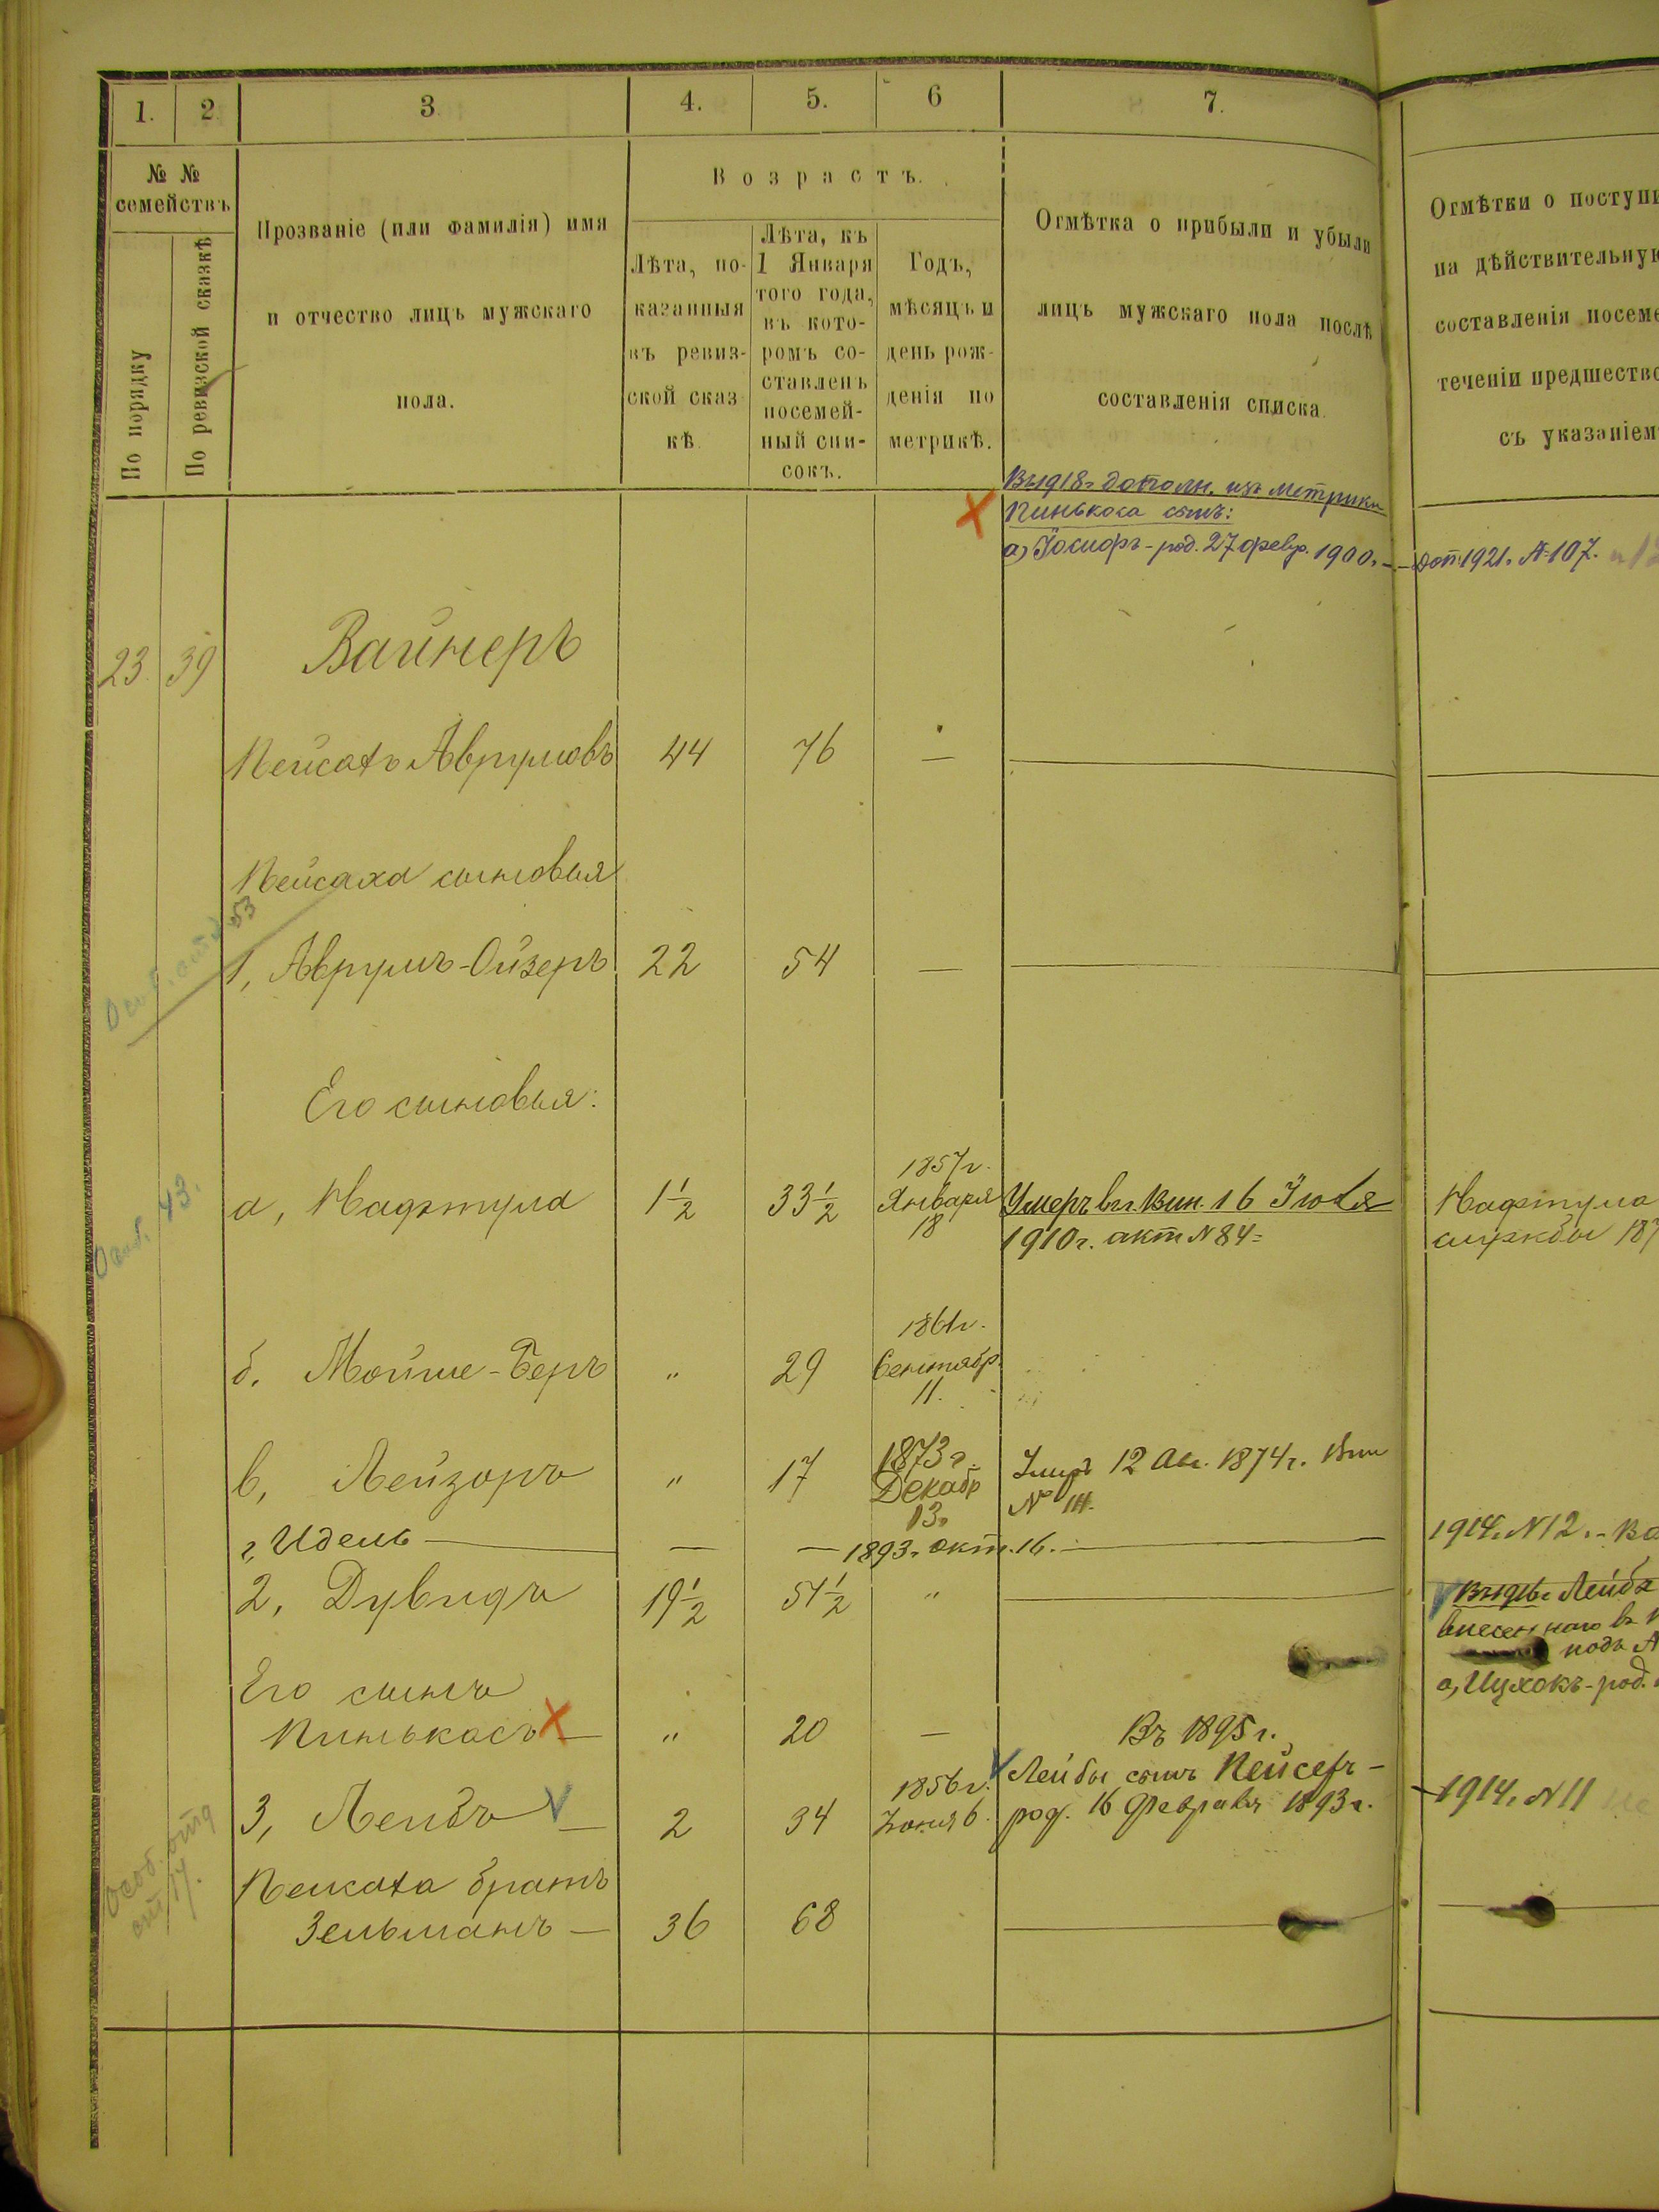 1. 2. 3 4. 5. 6 7.
№ №
семействъ
По порядку
По ревизской сказкѣ
Прозваніе (или фамилія) имя
и отчество лицъ мужскаго
пола.
Возрастъ.
Лѣта, по-
казанныя
въ ревиз-
ской сказ
кѣ.
Лѣта, къ
1 Января
того года,
въ кото-
ромъ со-
ставленъ
посемей-
ный спи-
сокъ.
Годъ,
мѣсяцъ и
день рож-
денія по
метрикѣ.
Отмѣтка о прибыли и убыли
лицъ мужскаго пола послѣ
составленія списка.
Отмѣтки о поступи
на дѣйствительную
составленія посеме
теченіи предшество
съ указаніем
Въ 1918г. дополн. изъ метрики
Пинькоса сынъ:
а) Іосифъ - род. 27 февр. 1900г. - - Доп. 1921. № 107.
23 39 Вайнеръ
Пейсахъ Аврумовъ 44 76 —
Пейсаха сыновья
53
1, Аврумъ-Ойзеръ 22 54 —
Его сыновья:
43.
а, Нафтула 1½ 33½ 1857г. Января 18 Умеръ въ г. Вин. 16 Іюля
1910г. акт № 84=
Нафтула
службы 187
б. Мойше-Беръ " 29 1861г. Сентябр. 11.
в, Лейзоръ " 17 1873г. Декабр 13. Умеръ 12 Авг. 1874г. Вин
№
г, Идель — — — 1893г. окт. 16. — 1914. №12. -
2, Дувидъ 19½ 51½ "
Лейба
внесеннаго въ
подъ
а, Ицхокъ - род.
Его сынъ
Пинькосъ X — " 20 — Въ 1895г.
3, Лейбъ V — 2 34 1856г. Іюня 6. Лейбы сынъ Пейсехъ -
род. 16 Февраля 1893г. 1914. №11
Особ. отд
Пейсаха братъ
Зельманъ — 36 68